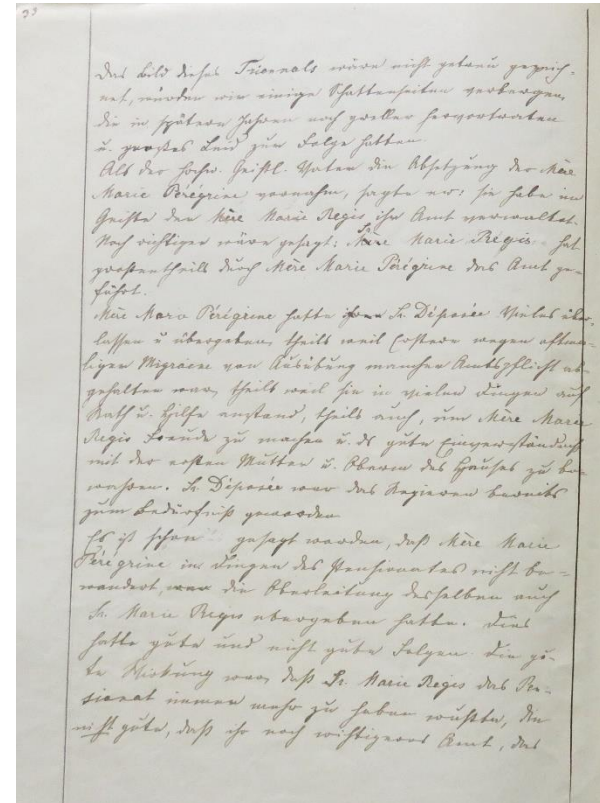 33
Das Bild dieses Triennals wäre nicht getreu gezeich-
net, würden wir einige Schattenseiten verbergen,
die in spätern Jahren noch greller hervortraten
u. großes Leid zur Folge hatten.
Als der hochw. Geistl. Vater die Absetzung der Mère
Marie Pérégrine vornahm, sagte er: sie habe im
Geiste der Mère Marie Regis ihr Amt verwaltet.
Noch richtiger wäre gesagt: Mère Marie Regis hat
großentheils durch Mère Marie Pérégrine das Amt ge-
führt.
Mère Marie Pérégrine hatte ihrer Sr. Déposée Vieles über-
lassen u. übergeben, theils weil Erstere wegen oftma-
liger Migraene von Ausübung mancher Amtspflicht ab-
gehalten war, theils weil sie in vielen Dingen auf
Rath u. Hilfe anstand, theils auch, um Mère Marie
Regis Freude zu machen u. ds gute Einverständniß
mit der ersten Mutter u. Oberin des Hauses zu be-
wahren. Sr. Déposée war das Regieren bereits
zum Bedürfniß geworden.
Es ist schon gesagt worden, daß Mère Marie
Pérégrine in Dingen des Pensionates nicht be-
wandert, die Oberleitung desselben auch
Sr. Marie Regis übergeben hatte. Dies
hatte gute und nicht gute Folgen. Die gu-
te Wirkung war, daß Sr. Marie Regis das Pen-
sionat immer mehr zu heben wußte, die
nicht gute, daß ihr noch wichtigeres Amt, das